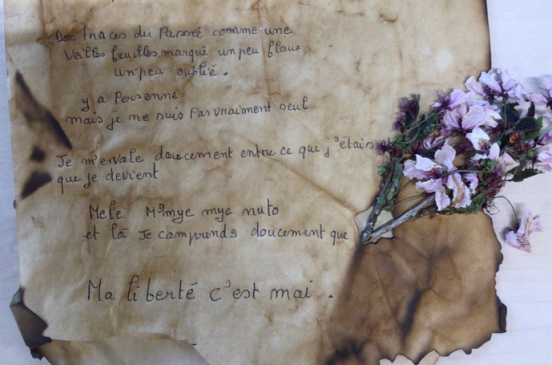 Des traces du Passé comme une
Veilles feuilles marqué un peu flous
un peu oublié.
y a Personne
mais je ne suis Pas vraiment seul
Je m'ervale doucement entre ce que j'étais
que je devient
Mele M'mye mye nuto
et là Je comprends doucement que
Ma liberté c'est mai.